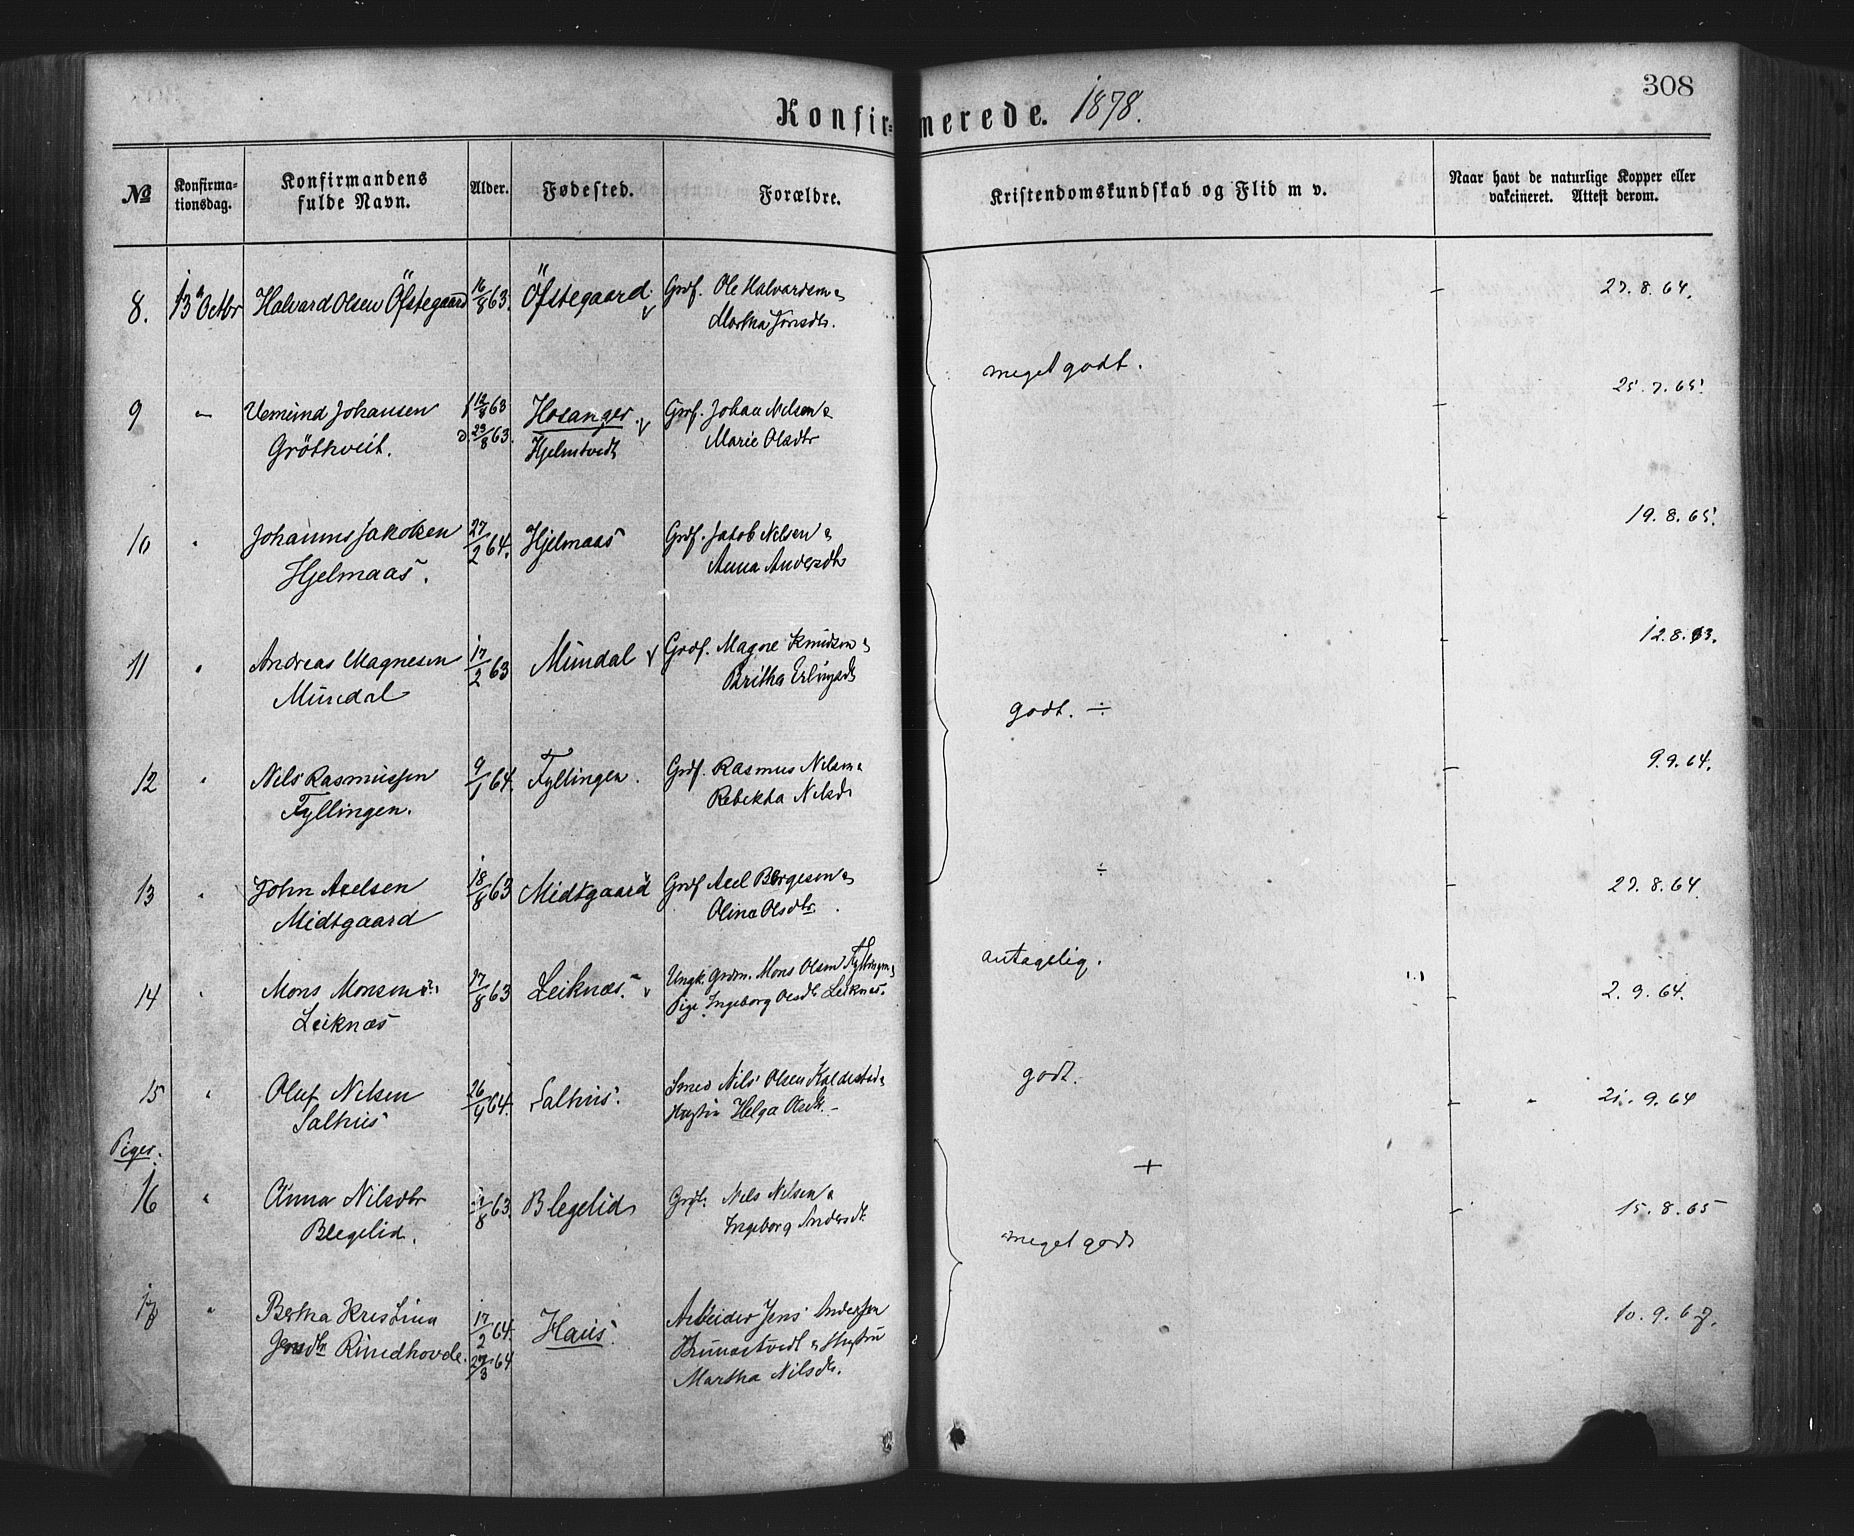 308
Konfirmerede. 1878.
№
Konfirma-
tionsdag.
Konfirmandens
fulde Navn.
Alder.
Fødested.
Forældre.
Kristendomskundskab og Flid m v.
Naar havt de naturlige Kopper eller
vakcineret. Attest derom.
8. 13 Octbr Halvard Olsen Öfstegaard 16/8 63. Öfstegaard. Grdf. Ole Halvardsen &
Martha Jonsdtr. 27.8.64.
meget godt.
9 " Vemund Johansen f 12/8 63 Hosanger Grdf. Johan Nelsen & 25.7.65.
Gröthveit. d 23/8 63. Hjelmtvedt Marie Olsdtr
10 " Johannes Jakobsen 27/2 64. Hjelmaas Grdf. Jakob Nelsen & 19.8.65.
Hjelmaas. Anna Andersdtr
11 " Andreas Magnesen 17/2 63 Mundal Grdf. Magne Knudsen & 12.8.63.
Mundal Britha Erlingsdtr
godt. ÷
12 " Nils Rasmussen 9/1 64. Fyllingen. Grdf. Rasmus Nilsen & 9.9.64.
Fyllingen. Rebekka Nilsdr
÷
13 " John Axelsen 18/8 63 Midtgaard Grdf Axel Börgesen & 27.8.64.
Midtgaard Olina Olsdtr.
antagelig.
14 " Mons Monsen 27/8 63 Leiknæs. Ungk. Grdm. Mons Olsen Fyllingen &
Leiknæs Pige Ingeborg Olsdtr Leiknæs. 2.9.64.
godt.
15 " Oluf Nilsen 26/4 64. Salhus. Smed Nils Olsen Kaldestad &
Salhus Hustru Helga Olsdtr. " 21.9.64
Piger.
+
16 " Anna Nilsdtr 8 63. Blegelid Grdf. Nels Nelsen & 15.8.65
Blegelid. Ingeborg Andersdtr
meget godt
17 " Bertha Kristina 17/2 64. Haus. Arbeider Jens Andersen 10.9.67.
Jensdtr Rundhovde. 27/3 64 & Hustru
Martha Nilsdtr.